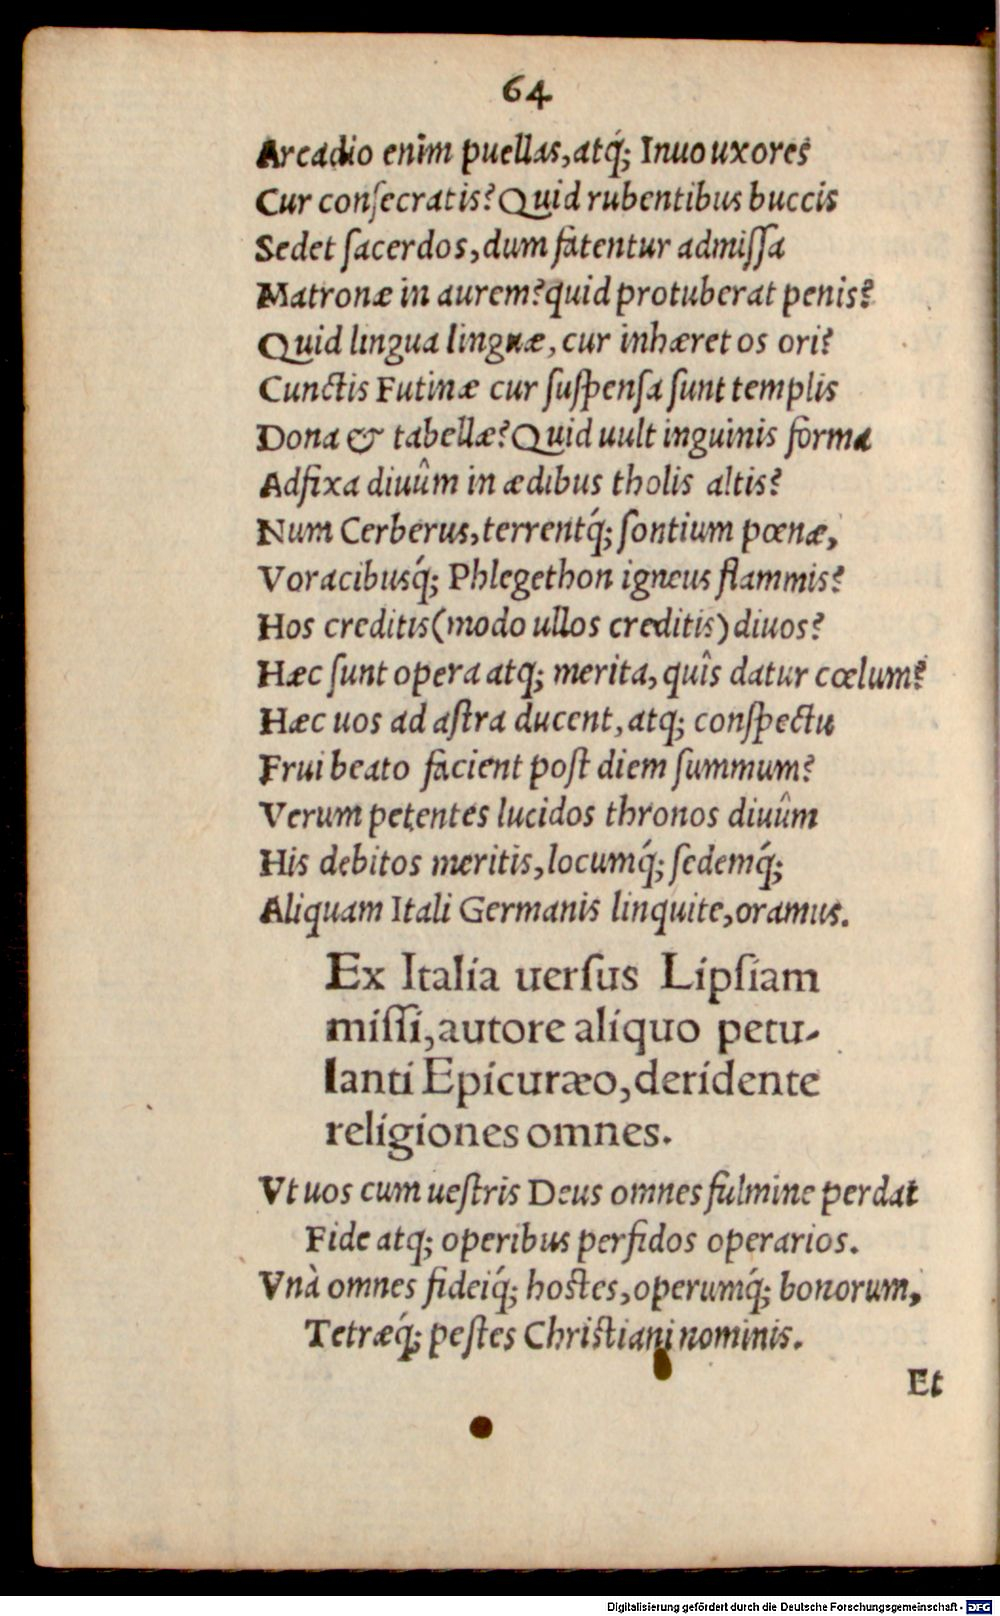 64
Arcadio enim puellas, atq́; Inuo uxores
Cur conſecratis? Quid rubentibus buccis
Sedet ſacerdos, dum fatentur admiſſa
Matronæ in aurem? quid protuberat penis?
Quid lingua linguæ, cur inhæret os ori?
Cunctis Futinæ cur ſuſpenſa ſunt templis
Dona & tabellæ? Quid uult inguinis forma
Adfixa diuûm in ædibus tholis altis?
Num Cerberus, terrentq́; ſontium pœnæ,
Voracibusq́; Phlegethon igneus flammis?
Hos creditis (modo ullos creditis) diuos?
Hæc ſunt opera atq; merita, quîs datur cœlum?
Hæc uos ad aſtra ducent, atq; conſpectu
Frui beato facient poſt diem ſummum?
Verum petentes lucidos thronos diuûm
His debitos meritis, locumq́; ſedemq́;
Aliquam Itali Germanis linquite, oramus.
Ex Italia uerſus Lipſiam
miſſi, autore aliquo petu-
lanti Epicuræo, deridente
religiones omnes.
Vt uos cum ueſtris Deus omnes fulmine perdat
Fide atq; operibus perfidos operarios.
Vnà omnes fideiq́; hoſtes, operumq́; bonorum,
Tetræq́; peſtes Chriſtiani nominis.
Et
Digitalisierung gefördert durch die Deutsche Forschungsgemeinschaft - DFG